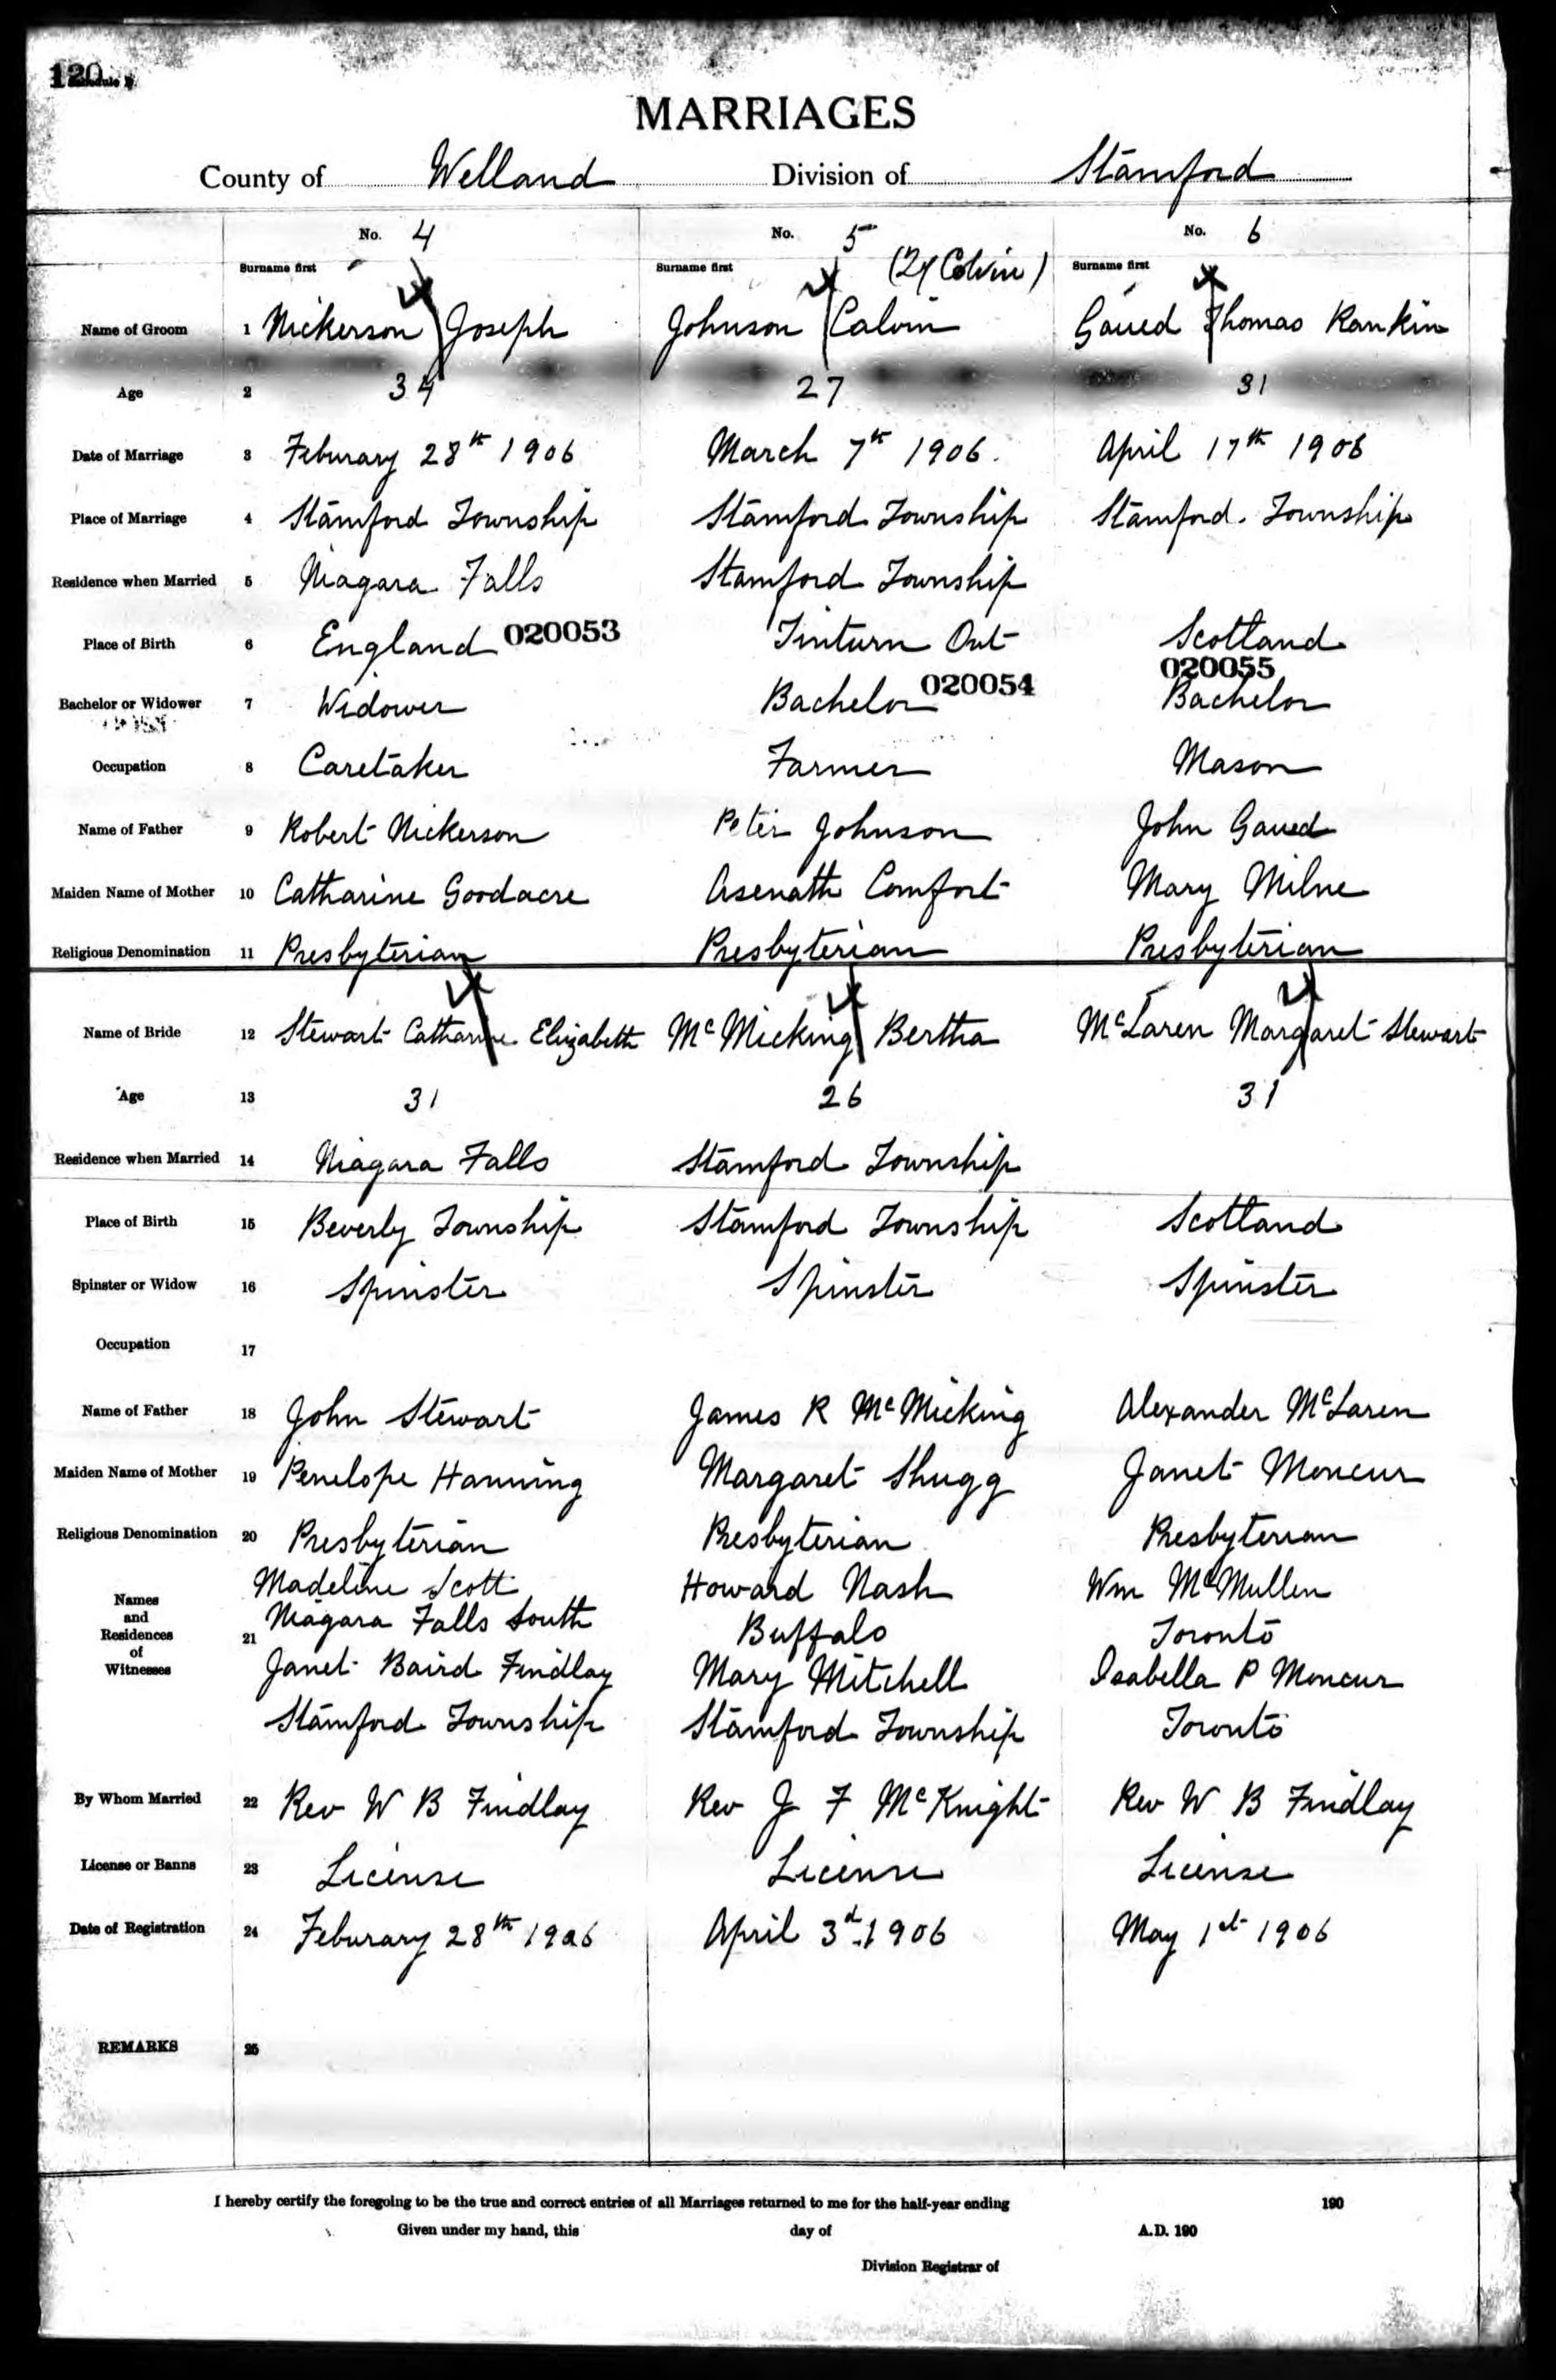 120
Schedule B.
MARRIAGES
County of Welland Division of Stamford
No. 4 No. 5 No. 6
Surname first Surname first (24 Colvin) Surname first
Name of Groom 1 Nickerson Joseph Johnson Calvin Gaued Thomas Rankin
Age 2 34 27 31
Date of Marriage 3 Feburary 28th 1906 March 7th 1906. April 17th 1906
Place of Marriage 4 Stamford Township Stamford Township Stamford. Township
Residence when Married 5 Niagara Falls Stamford Township
Place of Birth 6 England 020053 Tinturn Ont Scotland
020055
Bachelor or Widower 7 Widower Bachelor 020054 Bachelor
Occupation 8 Caretaker Farmer Mason
Name of Father 9 Robert Nickerson Peter Johnson John Gaued
Maiden Name of Mother 10 Catharine Goodacre Asenath Comfort Mary Milne
Religious Denomination 11 Presbyterian Presbyterian Presbyterian
Name of Bride 12 Stewart Catharine Elizabeth McMicking Bertha McLaren Margaret Stewart
Age 13 31 26 31
Residence when Married 14 Niagara Falls Stamford Township
Place of Birth 15 Beverly Township Stamford Township Scotland
Spinster or Widow 16 Spinster Spinster Spinster
Occupation 17
Name of Father 18 John Stewart James R McMicking Alexander McLaren
Maiden Name of Mother 19 Penelope Hanning Margaret Shugg Janet Moncur
Religious Denomination 20 Presbyterian Presbyterian Presbyterian
Names and Residences of Witnesses 21
Madeline Scott Howard Nash Wm McMullen
Niagara Falls South Buffalo Toronto
Janet Baird Findlay Mary Mitchell Isabella P Moncur
Stamford Township Stamford Township Toronto
By Whom Married 22 Rev W B Findlay Rev J F McKnight Rev W B Findlay
License or Banns 23 License License License
Date of Registration 24 Feburary 28th 1906 April 3d 1906 May 1st 1906
REMARKS 25
I hereby certify the foregoing to be the true and correct entries of all Marriages returned to me for the half-year ending 190
Given under my hand, this day of A.D. 190
Division Registrar of